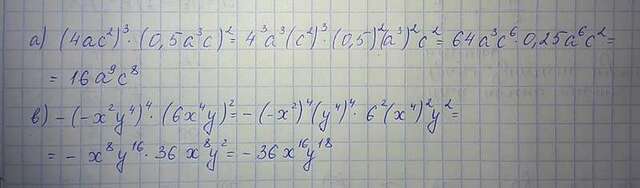 а) (4ac²)³ · (0,5a³c)² = 4³a³(c²)³ · (0,5)²(a³)²c² = 64a³c⁶ · 0,25a⁶c² =
= 16a⁹c⁸
в) -(-x²y⁴)⁴ · (6x⁴y)² = -(-x²)⁴(y⁴)⁴ · 6²(x⁴)²y² =
= - x⁸y¹⁶ · 36x⁸y² = -36x¹⁶y¹⁸